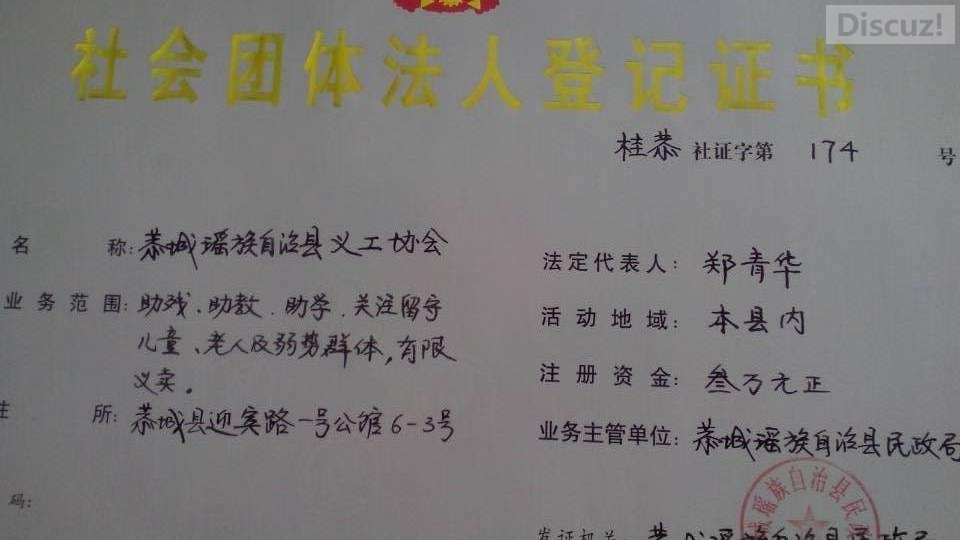 Discuz!
社会团体法人登记证书
桂恭 社证字第 174 号
名 称: 恭城瑶族自治县义工协会
业务范围: 助残、助教、助学、关注留守
儿童、老人及弱势群体,有限
义卖。
住 所: 恭城县迎宾路一号公馆6-3号
码:
法定代表人: 郑青华
活动地域: 本县内
注册资金: 叁万元正
业务主管单位: 恭城瑶族自治县民政局
发证机关 恭城瑶族自治县民政局
城瑶族自治县民政